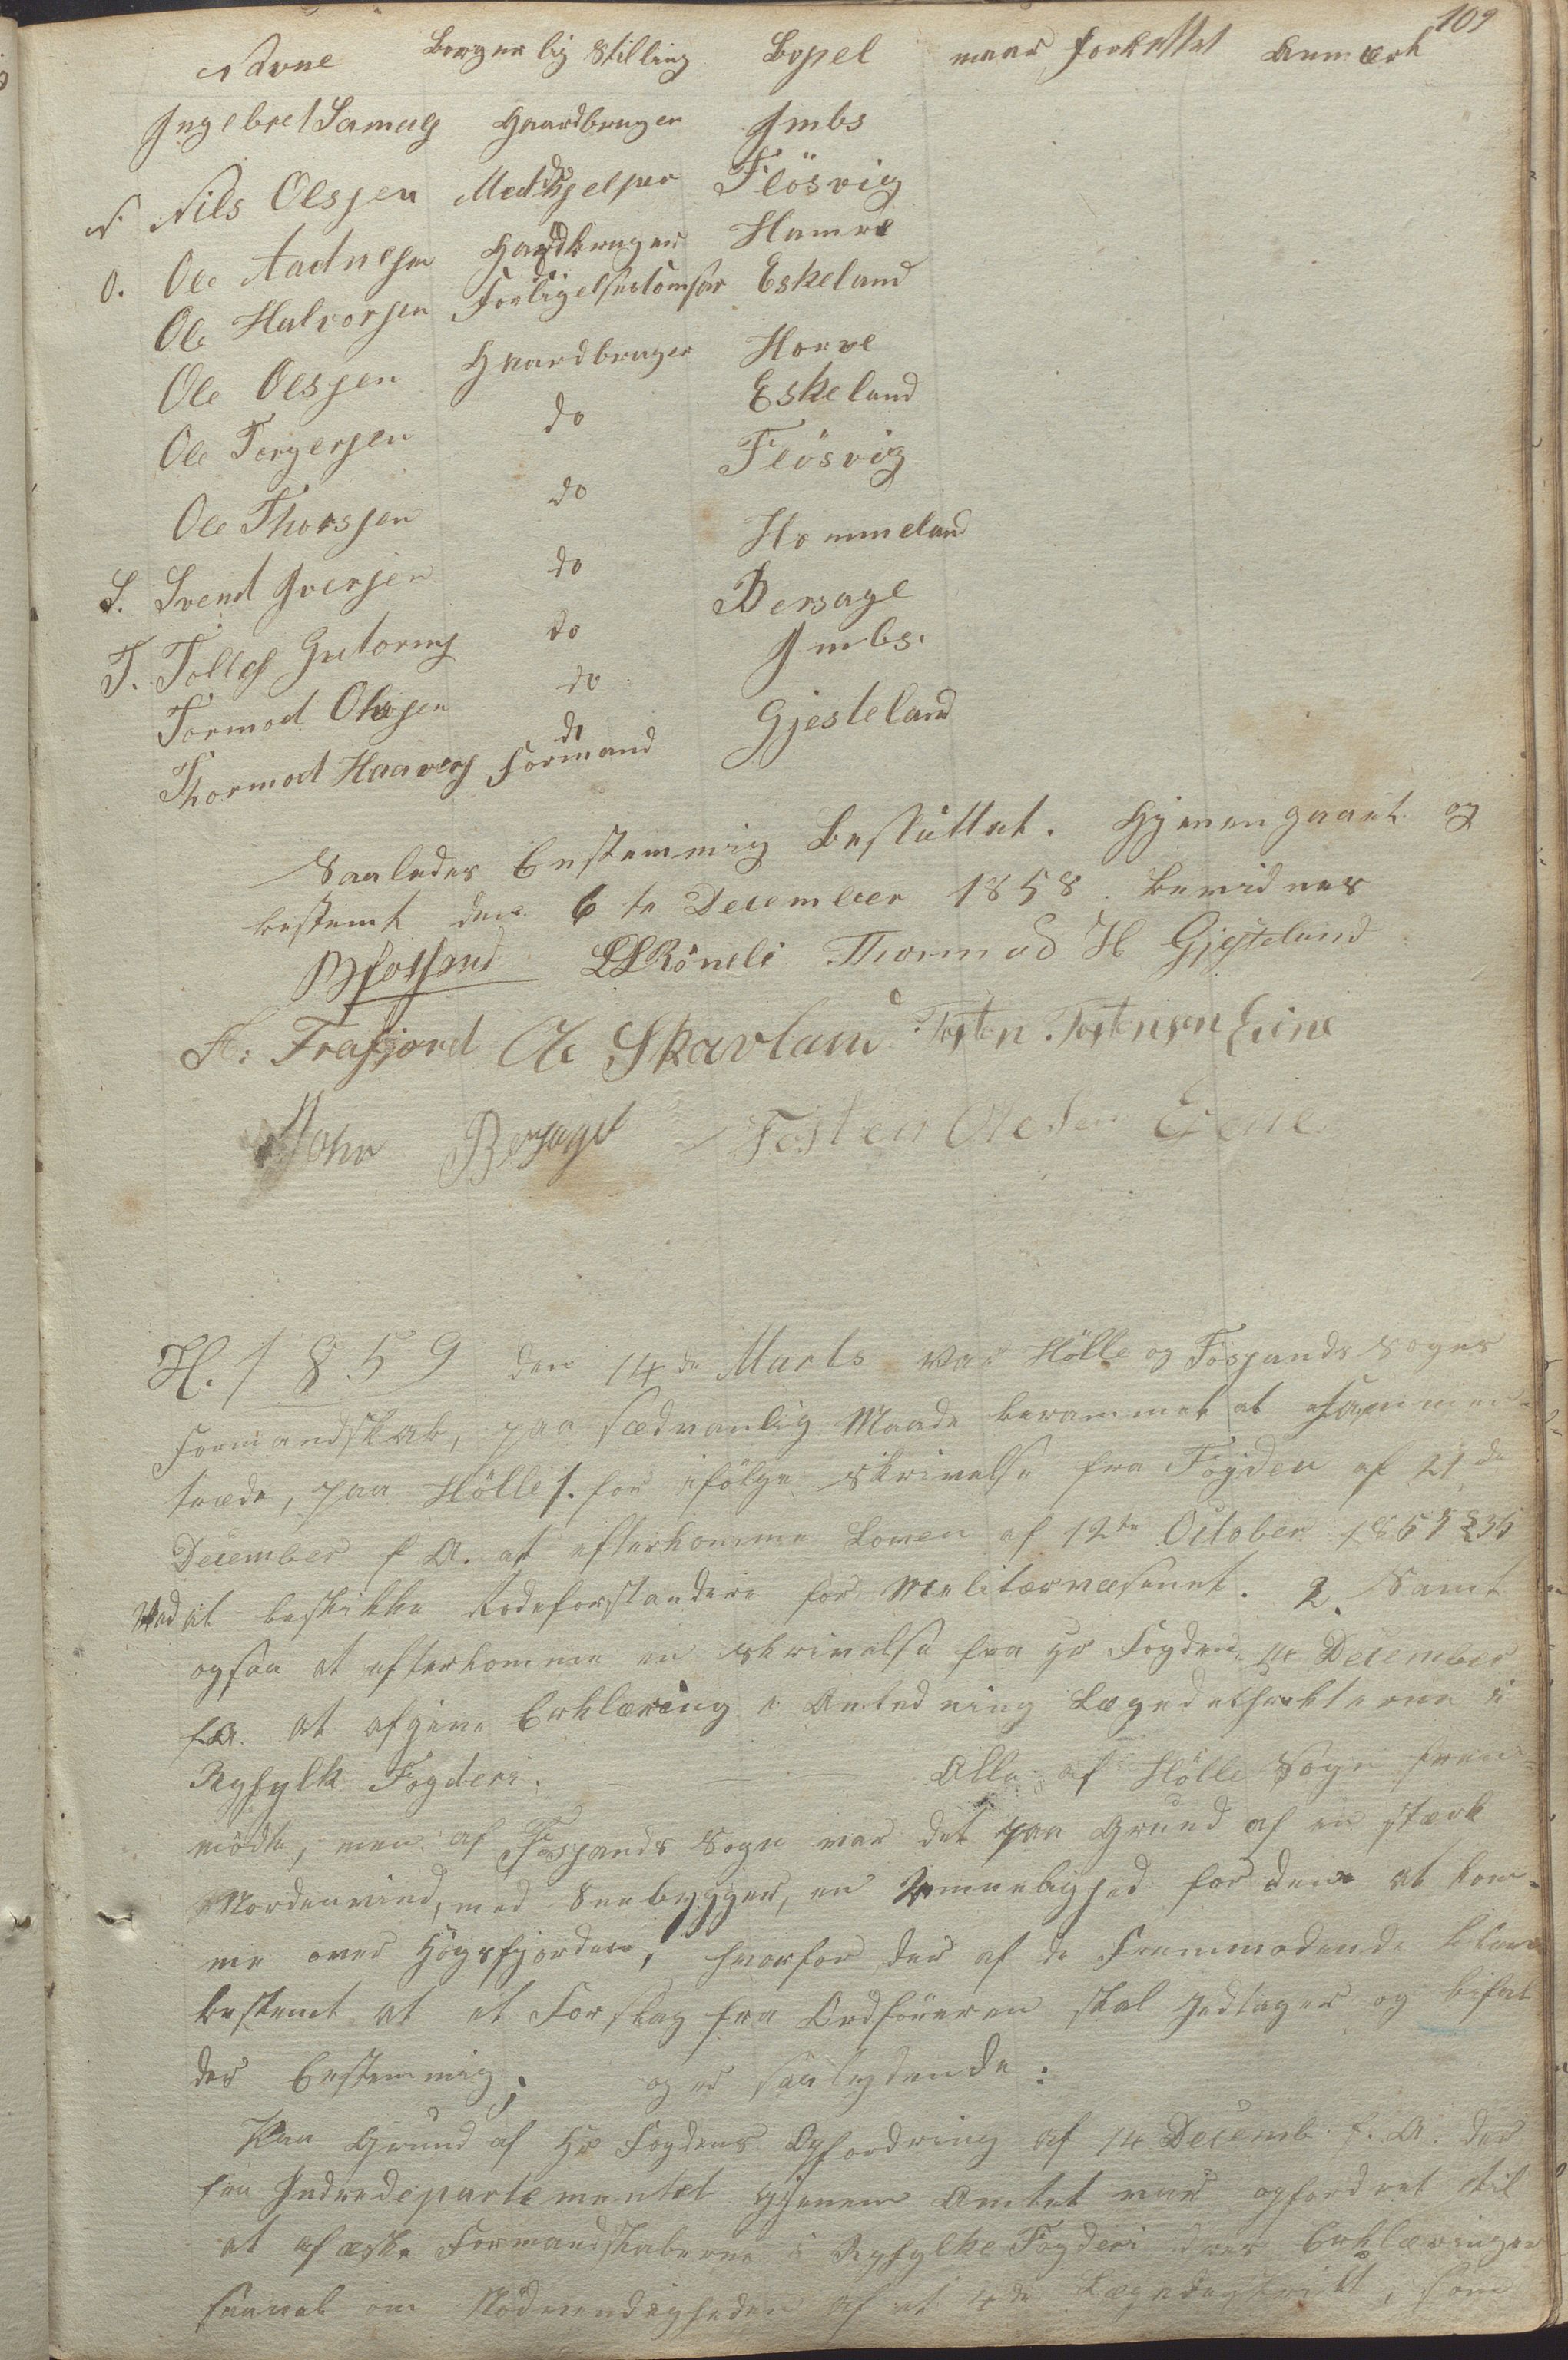 109
Navne Borgerlig Stilling Bopel naar forkastet Anmærk
Ingebret Samuels Gaardbruger Imbs
N. Nils Olsen Medhjelper Flösvig
O. Ole Aadnesen Gaardbruger Hamre
Ole Halvorsen Forligelsescomsær Eskeland
Ole Olsen Gaardbruger Horve
Ole Tergersen do Eskeland
Ole Thorsen do Flösvig
S. Svend Iversen do Hommeland
T. Tollef Gutorms do Bersage
Tormod Olasen do Imbs.
Thormod Haavors do Formand Gjesteland
Saaledes Enstemmig Besluttet. Gjenemgaaet og
bestemt den 6te December 1858. bevidnes
LLRöneli Thormod H Gjesteland
A: Frafjord Ole Skavland Tosten Tostensen Eine
John Bersaget Tosten Olesen Eiene
H. 1859 den 14de Marts var Hölle og Fossands Sognes
Formandskab, paa sædvanlig Maade berammet at sammen-
træde, paa Hölle 1. for ifölge Skrivelse fra Fogden af 21de
December f A. at efterkomme Loven af 12te October 1857 § 36
Ved at beskikke Rodeforstandere for Melitærvæsenet. 2. Samt
ogsaa at efterkomme en Skrivelse fra Hr Fogden 14 December
f.A. at afgive Erklæring i Anledning Lægedistrikterne i
Ryfylk Fogderi. Alle af Hölle Sogn frem-
mödte, men af Fossands Sogn var det paa Grund af en stærk
Nordenvind, med Sneebygger, en Umuelighed for dem at kom-
me over Högsfjorden, hvorfor der af de Fremmødende blev
bestemt at et Forslag fra Ordföreren skal Indtages og bifal
des Enstemmig; og er saalydende:
Paa Grund af Hr Fogdens Opfordring af 14 Decemb f. A. der
fra Indredepartementet gjenem Amtet var opfordret til
at afæske Formandskaberne i Ryfylke Fogderi deres Erklæringer
saavel om Nödvendigheden af et 4de Lægedistrikt, som